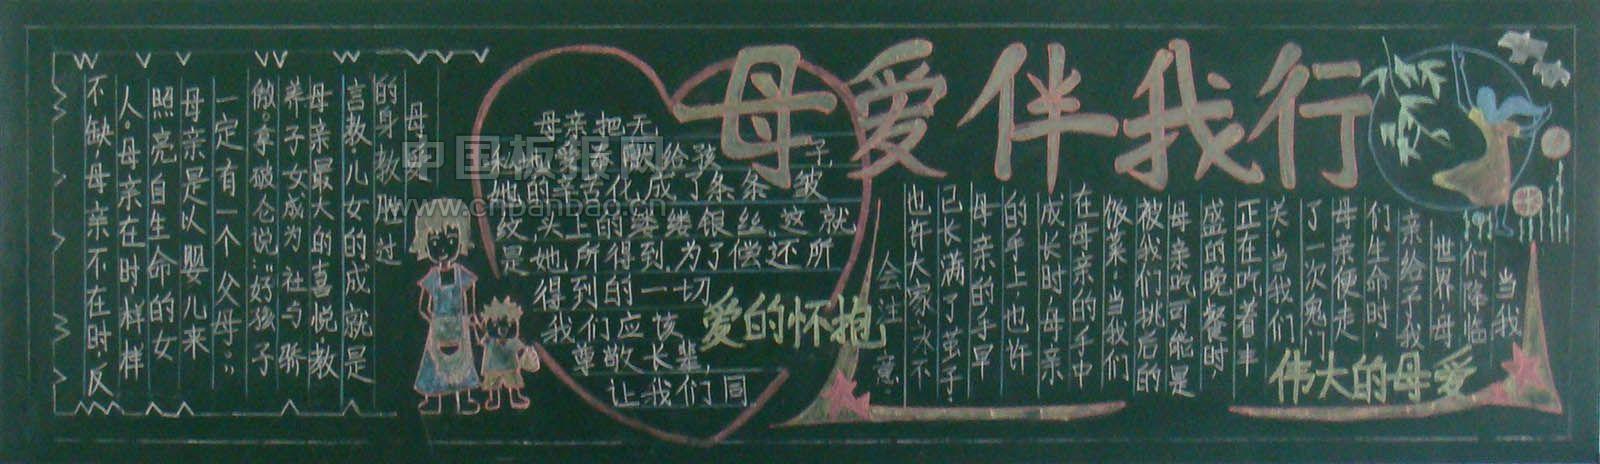 母爱伴我行
当我
们降临
世界,母
亲给予我
们生命时,
母亲便走
了一次鬼门
关.当我们
正在吃着丰
盛的晚餐时,
母亲吃可能是
被我们挑后的
饭菜.当我们
在母亲的手中
成长时,母亲
的手上,也许
母亲的手早
已长满了茧子.
也许大家永不
会注意.
伟大的母爱
母亲把无
私地爱奉献给孩子
她的辛苦化成了条条皱
纹,头上的缕缕银丝.这就
是她所得到,为了偿还所
得到的一切
我们应该
尊敬长辈,
让我们同
爱的怀抱
母
的身教胜过
言教儿女的成就是
母亲最大的喜悦,教
养子女成为社与骄
傲.拿破仑说:"好孩子
一定有一个父母."
母亲是以婴儿来
照亮自生命的女
人.母亲在时样样
不缺,母亲不在时,反
中国板报网
www.cnbanbao.cn